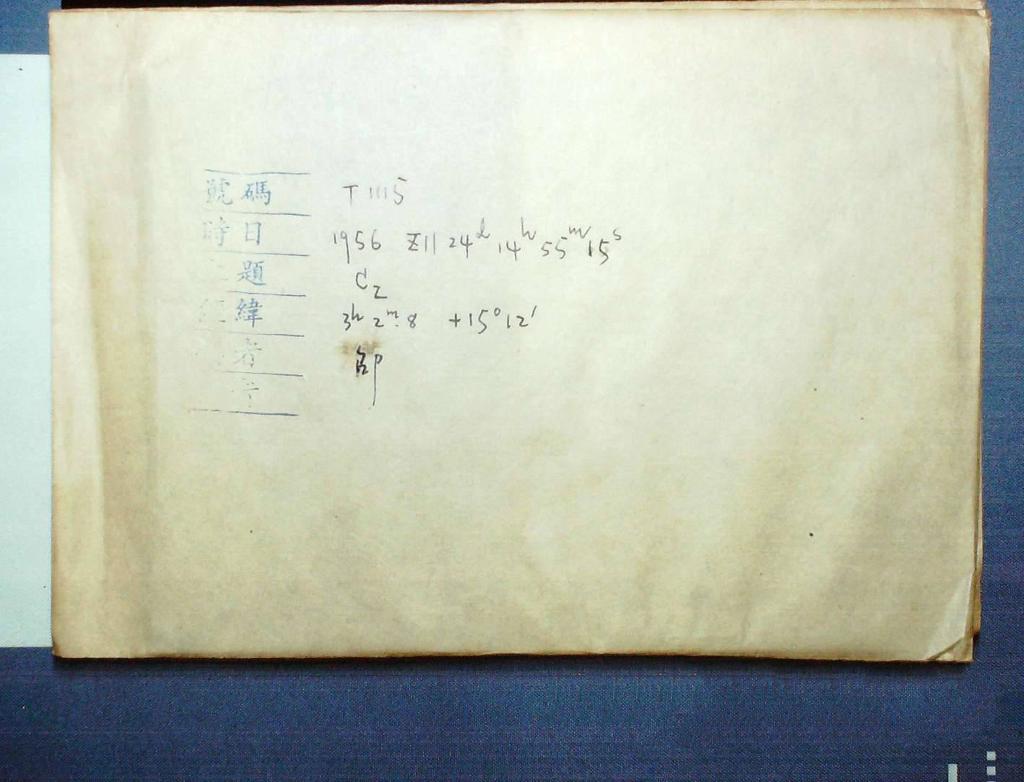 號碼 T 1115
時日 1956 XII 24d 14h 55m 15s
題 C2
緯 3h 2m.8 +15°12'
者 邵